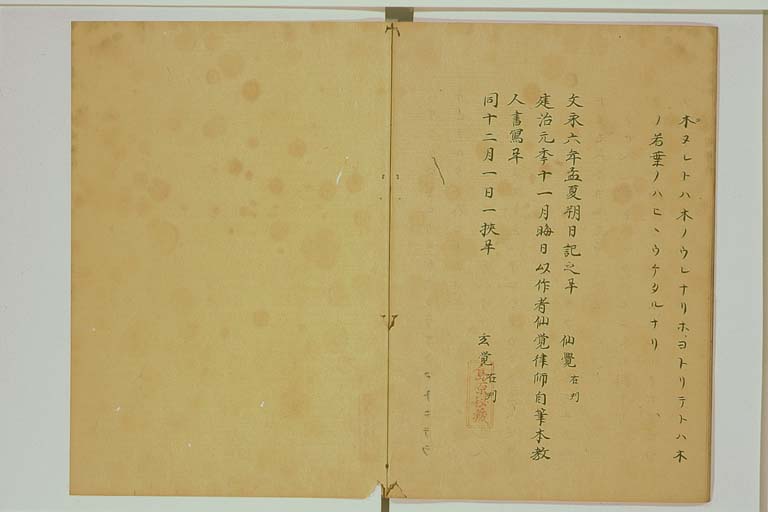 木ヌレトハ木ノウレナリホヨトリテトハ木
ノ若葉ノハヒヽウケタルナリ
文永六年孟夏朔日記之早 仙覺在判
建治元年十一月晦日以作者仙覚律師自筆本教
人書寫早
同十二月一日一挍早
玄覚在判